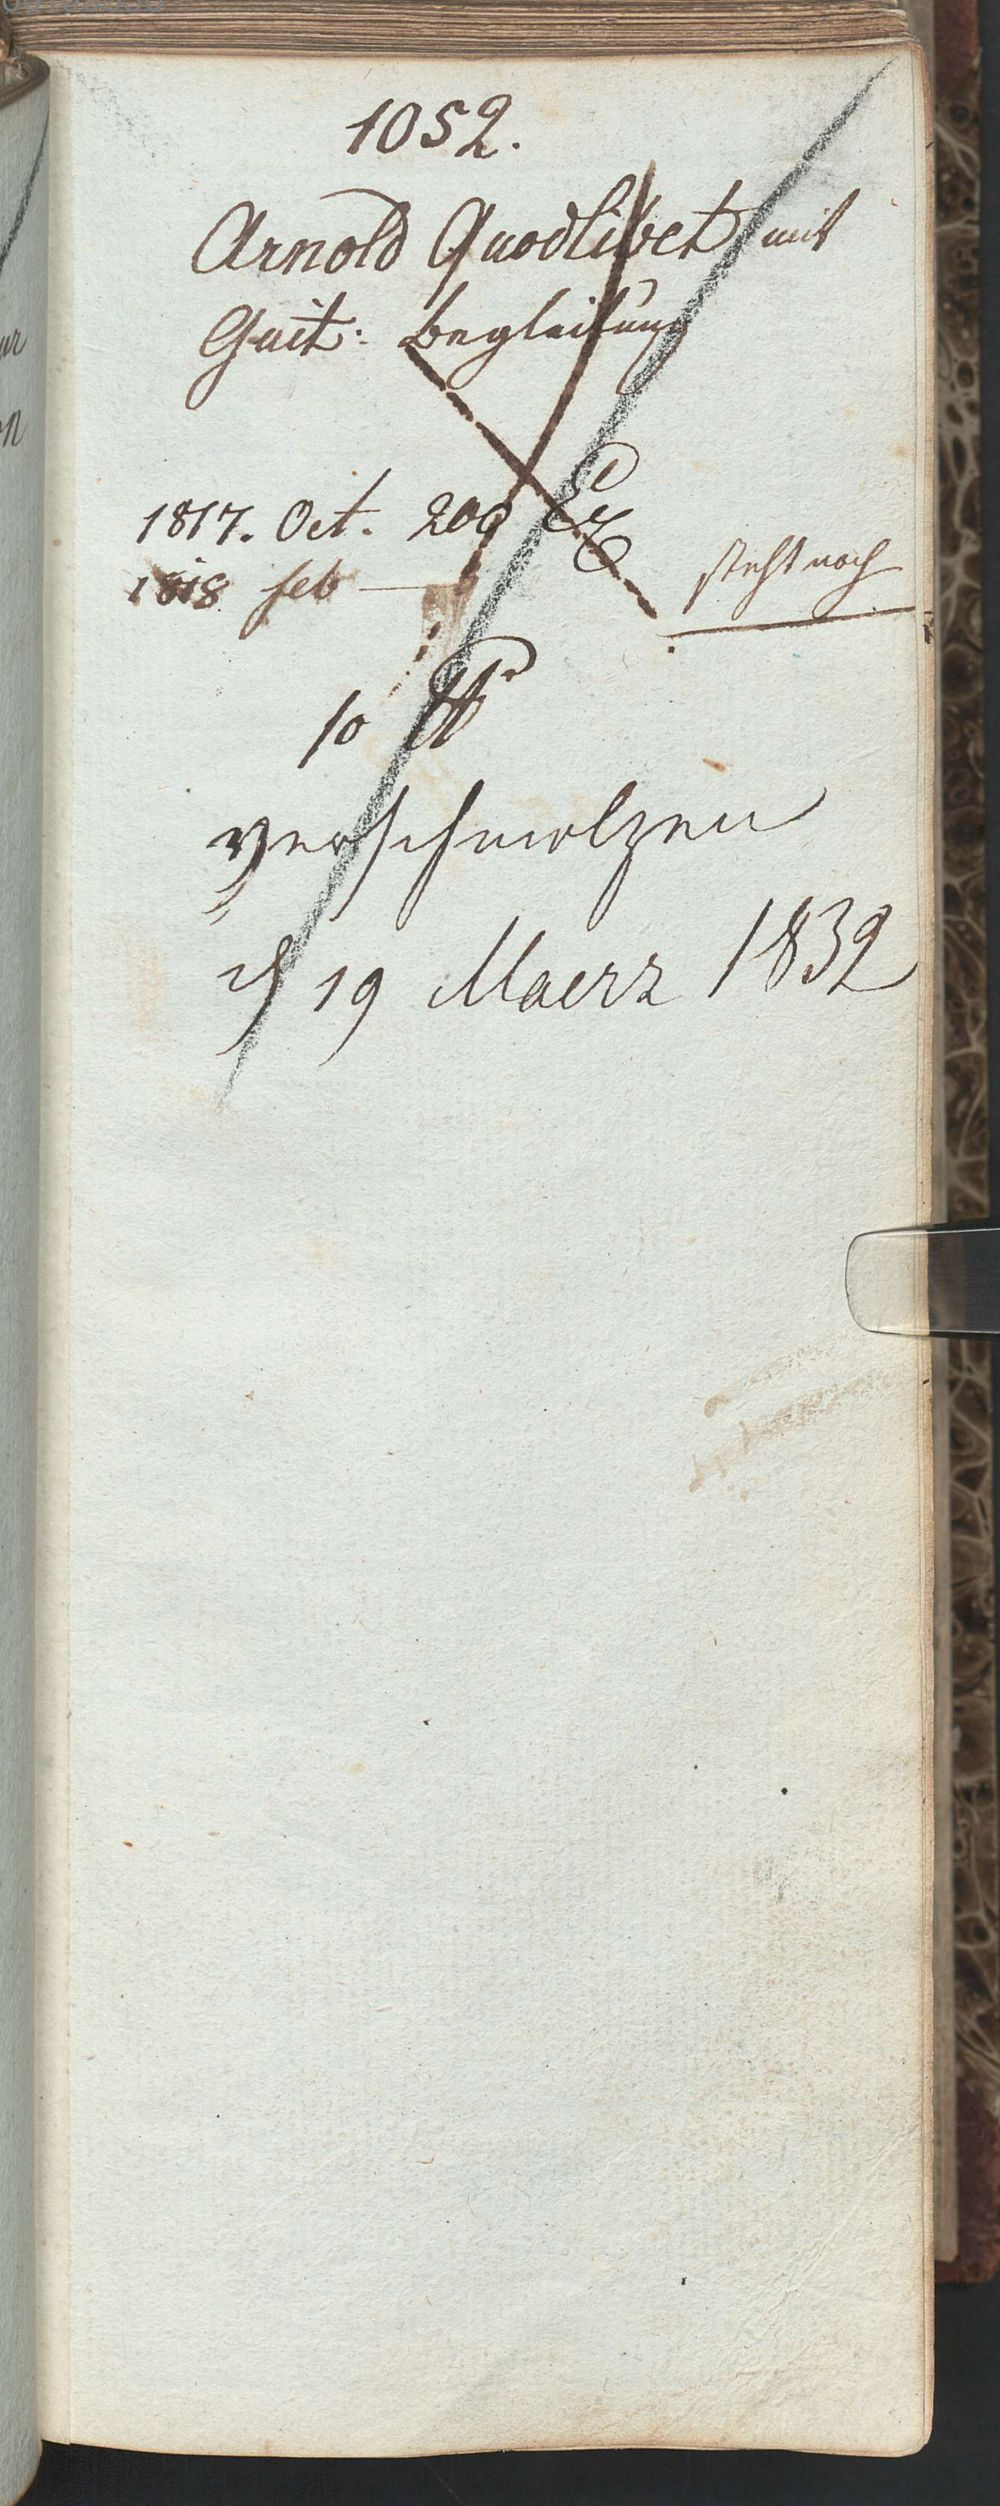 1052.
Arnold Quodlibet mit
Guit: Begleitung
1817. Oct. 200 Ex
1818 feb —
steht noch
10 ℔
verschmolzen
d 19 Maerz 1832